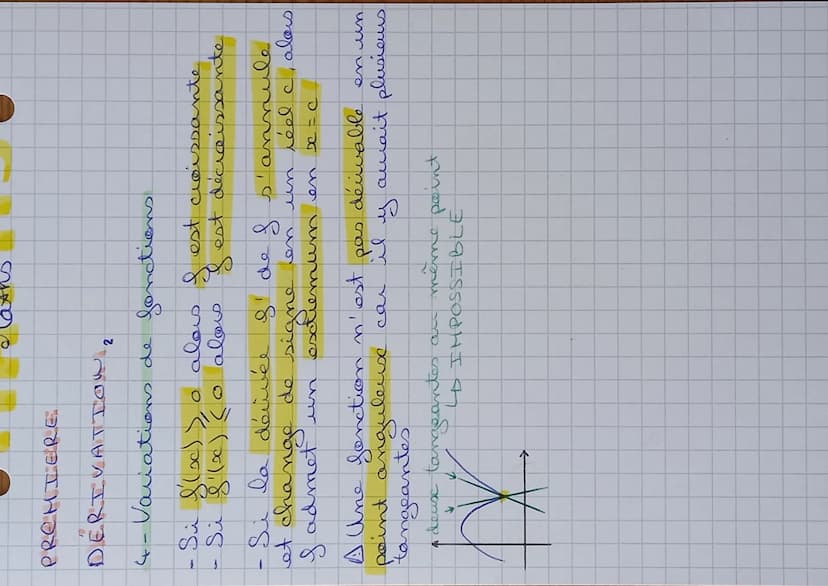 PREMIERE
DÉRIVATION 2
4- Variations de fonctions
- Si f'(x) ⩾ 0 alors f est croissante
- Si f'(x) ⩽ 0 alors f est décroissante
- Si la dérivée f' de f s'annule
et change de signe en un réel c, alors
f admet un extremum en x = c
⚠ Une fonction n'est pas dérivable en un
point anguleux car il y aurait plusieurs
tangeantes
deux tangeantes au même point
↳ IMPOSSIBLE